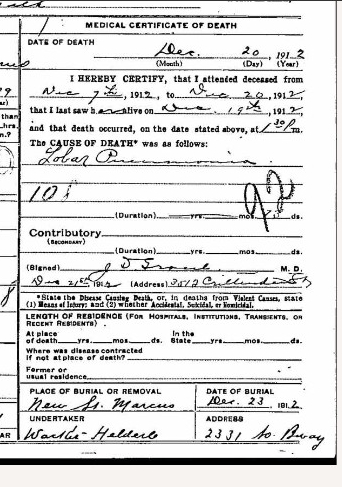 MEDICAL CERTIFICATE OF DEATH
DATE OF DEATH
Dec. 20 1912
(Month) (Day) (Year)
I HEREBY CERTIFY, that I attended deceased from
Dec 7th, 1912, to Dec 20, 1912,
that I last saw h er alive on Dec. 19th 1912,
and that death occurred, on the date stated above, at 1 30 P m.
The CAUSE OF DEATH* was as follows:
Lobar Pneumonia
108
92
(Duration) yrs. mos. ds.
Contributory
(SECONDARY)
(Duration) yrs. mos. ds.
(Signed) J D M. D.
Dec 21st 1912 (Address) 3512
*State the Disease Causing Death, or, in deaths from Violent Causes, state
(1) Means of Injury; and (2) whether Accidental, Suicidal, or Homicidal.
LENGTH OF RESIDENCE (FOR HOSPITALS, INSTITUTIONS, TRANSIENTS, OR
RECENT RESIDENTS).
At place In the
of death yrs. mos. ds. State yrs. mos. ds.
Where was disease contracted
if not at place of death?
Former or
usual residence
PLACE OF BURIAL OR REMOVAL DATE OF BURIAL
New St. Marcus Dec. 23 1912
UNDERTAKER ADDRESS
Wacker-Helderle 2331 So. Bway
than
hrs.
n.?
AR